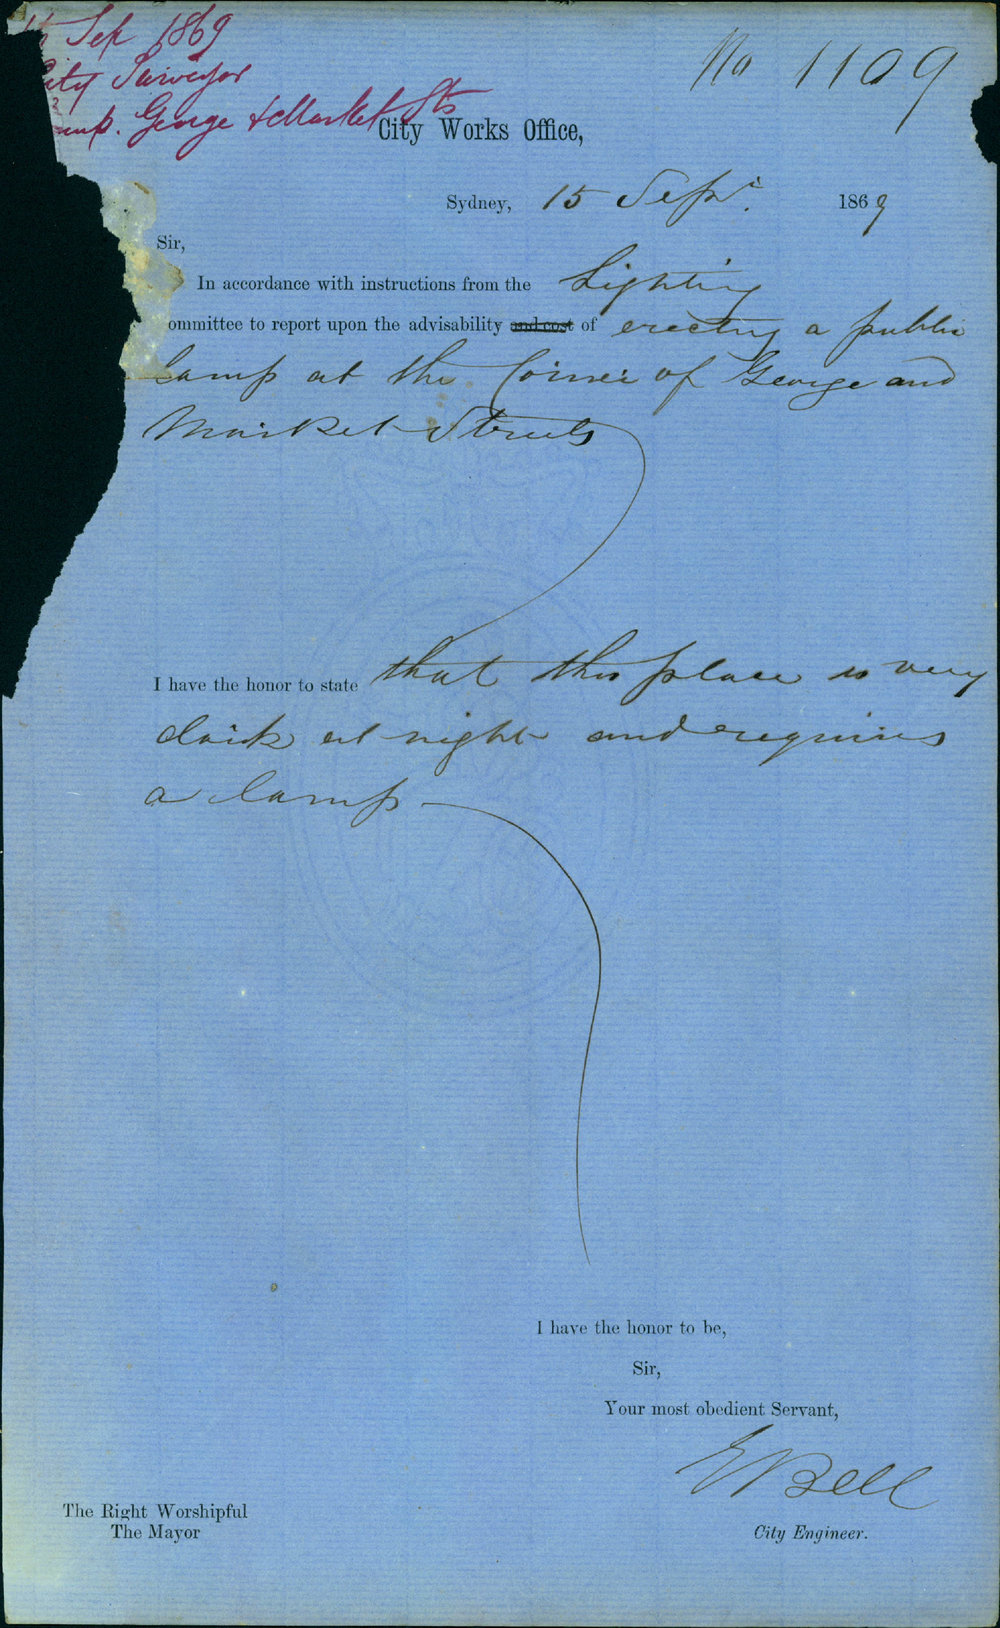 Sep 1869
City Surveyor
Lamp. George & Market Sts
No 1109
City Works Office,
Sydney, 15 Sepr. 1869
Sir,
In accordance with instructions from the Lighting
ommittee to report upon the advisability and cost of erecting a public
Lamp at the Corner of George and
Market Streets
I have the honor to state that this place is very
dark at night and requires
a lamp
I have the honor to be,
Sir,
Your most obedient Servant,
E Bell
City Engineer.
The Right Worshipful
The Mayor